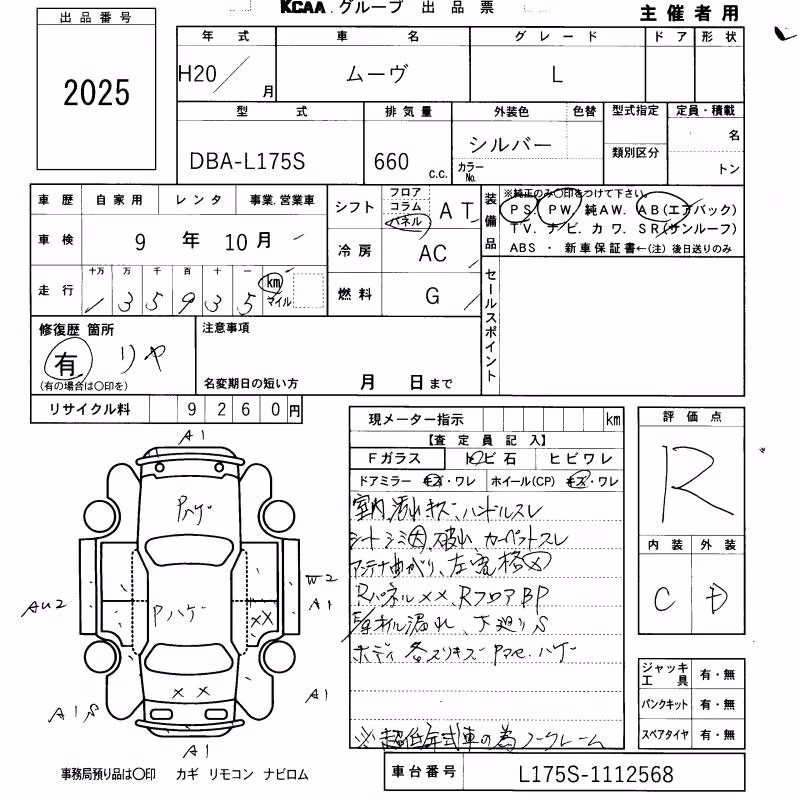 KCAA.グループ 出品票
主催者用
出品番号
2025
年式 車名 グレード ドア 形状
H20/ 月 ムーヴ L
型式 排気量 外装色 色替 型式指定 定員・積載
DBA-L175S 660 c.c. シルバー 名
カラーNo. 類別区分 トン
車歴 自家用 レンタ 事業.営業車
車検 9年10月
走行 十万 万 千 百 十 一
1 3 5 9 3 5 km マイル
シフト フロア コラム パネル AT
冷房 AC
燃料 G
装備品
※純正のみ○印をつけて下さい。
PS. PW. 純AW. AB(エアバック)
TV. ナビ. カワ. SR(サンルーフ)
ABS ・ 新車保証書←(注) 後日送りのみ
セールスポイント
修復歴 箇所
有 リヤ
(有の場合は○印を)
注意事項
名変期日の短い方 月 日まで
リサイクル料 9 2 6 0 円
現メーター指示 km
【査定員記入】
Fガラス トビ石 ヒビワレ
ドアミラー キズ・ワレ ホイール(CP) キズ・ワレ
室内汚れキズ、ハンドルスレ
シートシミ因、破れ カーペットスレ
アンテナ曲がり、左
Rパネル××、RフロアBP
オイル漏れ、下廻りS
ボディ 各スリキズ ハゲ
※超低年式車の為ノークレーム
評価点
R
内装 外装
C D
ジャッキ 工具 有・無
パンクキット 有・無
スペアタイヤ 有・無
A1
Pハゲ
W2
Pハゲ
AU2
A1
××
××
A1S
A1
A1
事務局預り品は○印 カギ リモコン ナビロム
車台番号 L175S-1112568